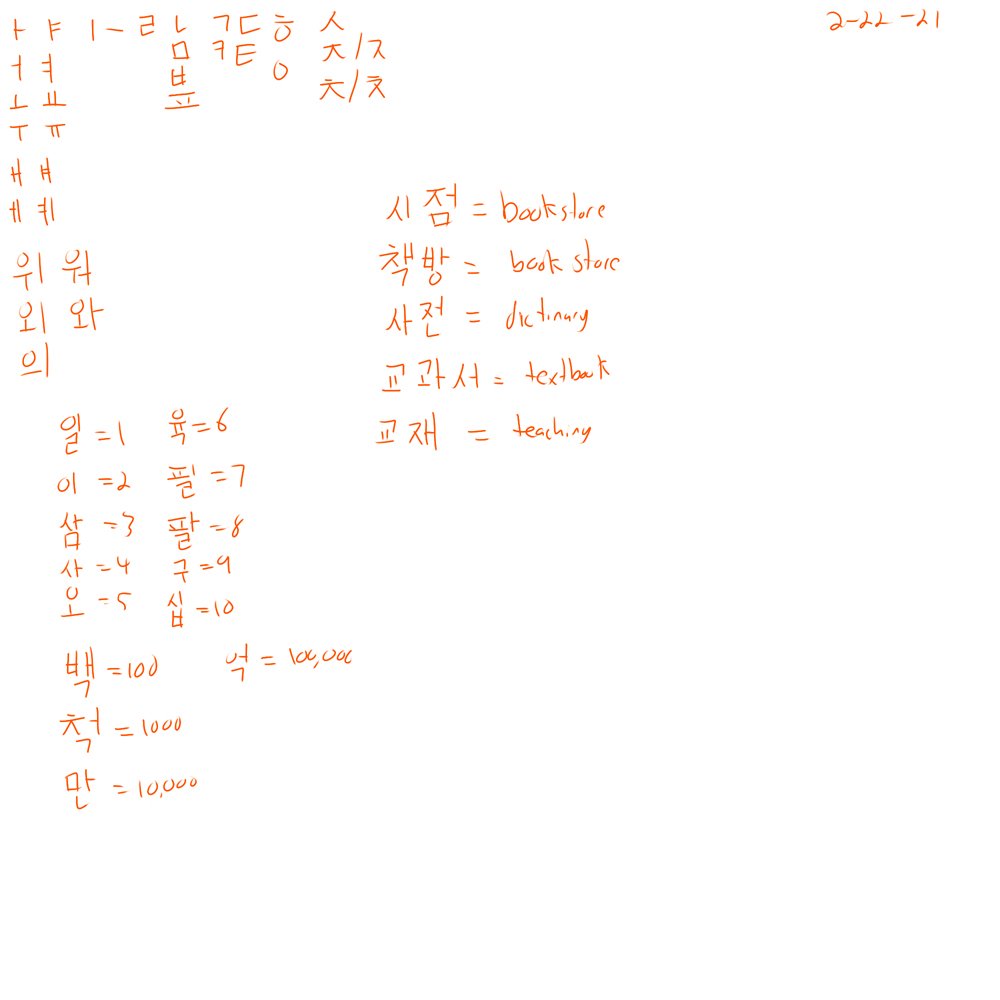 2-22-21
ㅏ ㅑ ㅣ ㅡ ㄹ ㄴ ㄱ ㄷ ㅎ ㅅ
ㅓ ㅕ ㅁ ㅋ ㅌ ㅇ ㅈ/ㅈ
ㅗ ㅛ ㅂ ㅊ/ㅊ
ㅜ ㅠ ㅍ
ㅐ ㅒ
ㅔ ㅖ
위 워
외 와
의
시점 = bookstore
책방 = book store
사전 = dictinary
교과서 = textbook
교재 = teaching
일 = 1 육 = 6
이 = 2 필 = 7
삼 = 3 팔 = 8
사 = 4 구 = 9
오 = 5 십 = 10
백 = 100 억 = 100,000
척 = 1000
만 = 10,000